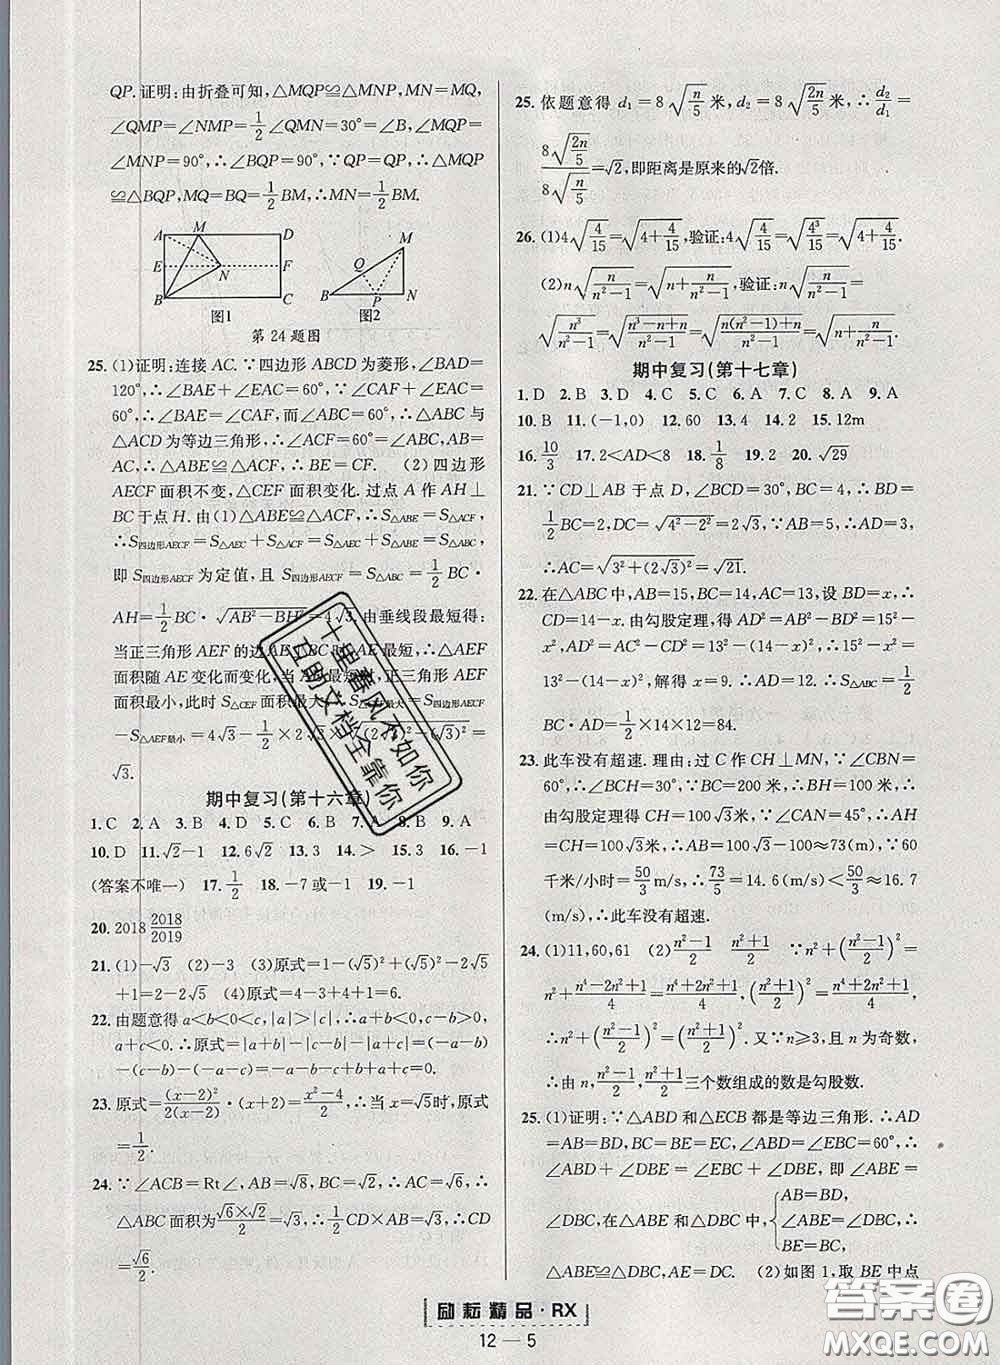 QP.证明:由折叠可知,△MQP≌△MNP,MN=MQ,
∠QMP=∠NMP=1/2∠QMN=30°=∠B,∠MQP=
∠MNP=90°,∴∠BQP=90°.∵QP=QP,∴△MQP
≌△BQP,MQ=BQ=1/2BM,∴MN=1/2BM.
A M D
E N F
B C
图1
M
Q
B P N
图2
第24题图
25.(1)证明:连接AC.∵四边形ABCD为菱形,∠BAD=
120°,∴∠BAE+∠EAC=60°,∠CAF+∠EAC=
60°,∴∠BAE=∠CAF,而∠BAC=60°,∴△ABC与
△ACD为等边三角形,∴∠ACF=60°=∠B,AC=
AB,∴△BAE≌△CAF,∴BE=CF. (2)四边形
AECF面积不变,△CEF面积变化.过点A作AH⊥
BC于点H.由(1)△ABE≌△ACF,∴S△ABE=S△ACF,
∴S四边形AECF=S△AEC+S△ACF=S△AEC+S△ABE=S△ABC,
即S四边形AECF为定值,且S四边形AECF=S△ABC=1/2BC·
AH=1/2BC·√(AB²-BH²)=4√3.由垂线段最短得:
当正三角形AEF的边AE⊥BC时,AE最短,∴△AEF
面积随AE变化而变化,当AE最短时,正三角形AEF
面积最小,此时S△CEF面积最大=S四边形AECF
-S△AEF最小=4√3-1/2×2√3×√((2√3)²-(√3)²)=
√3.
期中复习(第十六章)
1.C 2.A 3.B 4.D 5.C 6.B 7.A 8.B 9.A
10.D 11.√2-1 12.6√2 13.3 14.> 15.3 16.-1
(答案不唯一) 17.1/2 18.-7或-1 19.-1
20.2018 2018/2019
21.(1)-√3 (2)-3 (3)原式=1-(√5)²+(√5)²-2√5
+1=2-2√5 (4)原式=4-3+4+1=6.
22.由题意得a<b<0<c,|a|>|c|,∴a+b<0,c-b>0,
a+c<0.∴原式=|a+b|-|c-b|+|a+c|=(-a-b)
-(c-b)+(-a-c)=-a-b-c+b-a-c=-2a-2c.
23.原式=(x-2)²/2(x-2)·(x+2)=(x²-4)/2,∴当x=√5时,原式
=1/2.
24.∵∠ACB=Rt∠,AB=√8,BC=√2,∴AC=√6,∴
△ABC面积为(√6×√2)/2=√3,∴1/2CD×AB=√3,∴CD
=√6/2.
25.依题意得d₁=8√(n/5)米,d₂=8√(2n/5)米,∴d₂/d₁=
8√(2n/5)/8√(n/5)=√2,即距离是原来的√2倍.
26.(1)4√(4/15)=√(4+4/15),验证:4√(4/15)=√(4³/15)=√(4+4/15).
(2)n√(n/(n²-1))=√(n+n/(n²-1)),验证:n√(n/(n²-1))=
√(n³/(n²-1))=√((n³-n+n)/(n²-1))=√((n(n²-1)+n)/(n²-1))=√(n+n/(n²-1)).
期中复习(第十七章)
1.D 2.B 3.D 4.C 5.C 6.A 7.C 8.A 9.A
10.B 11.(-1,0) 12.60 13.4 14.2 15.12m
16.10/3 17.2<AD<8 18.1/8 19.2 20.√29
21.∵CD⊥AB于点D,∠BCD=30°,BC=4,∴BD=
1/2BC=2,DC=√(4²-2²)=2√3,∵AB=5,∴AD=3,
∴AC=√(3²+(2√3)²)=√21.
22.在△ABC中,AB=15,BC=14,AC=13,设BD=x,∴
CD=14-x.由勾股定理,得AD²=AB²-BD²=15²-
x²,AD²=AC²-CD²=13²-(14-x)²,∴15²-x²=
13²-(14-x)²,解得x=9.∴AD=12.∴S△ABC=1/2
BC·AD=1/2×14×12=84.
23.此车没有超速.理由:过C作CH⊥MN,∵∠CBN=
60°,∴∠BCH=30°,∵BC=200米,∴BH=100米,∴
由勾股定理得CH=100√3米,∵∠CAN=45°,∴AH
=CH=100√3米,∴AB=100√3-100≈73(m),∵60
千米/小时=50/3m/s,∴73/5=14.6(m/s)<50/3≈16.7
(m/s),∴此车没有超速.
24.(1)11,60,61 (2)(n²-1)/2 (n²+1)/2 ∵n²+((n²-1)/2)²=
n²+(n⁴-2n²+1)/4=(n⁴+2n²+1)/4,((n²+1)/2)²=(n⁴+2n²+1)/4,
∴n²+((n²-1)/2)²=((n²+1)/2)².又∵n≥3,且n为奇数,
∴由n,(n²-1)/2,(n²+1)/2三个数组成的数是勾股数.
25.(1)证明:∵△ABD和△ECB都是等边三角形.∴AD
=AB=BD,BC=BE=EC,∠ABD=∠EBC=60°,∴
∠ABD+∠DBE=∠EBC+∠DBE,即∠ABE=
∠DBC,在△ABE和△DBC中,{AB=BD,
∠ABE=∠DBC,∴
BE=BC,
△ABE≌△DBC,AE=DC. (2)如图1,取BE中点
十里春风不如你
互助文档全靠你
励耘精品·RX
12—5
答案圈
MXQE.COM